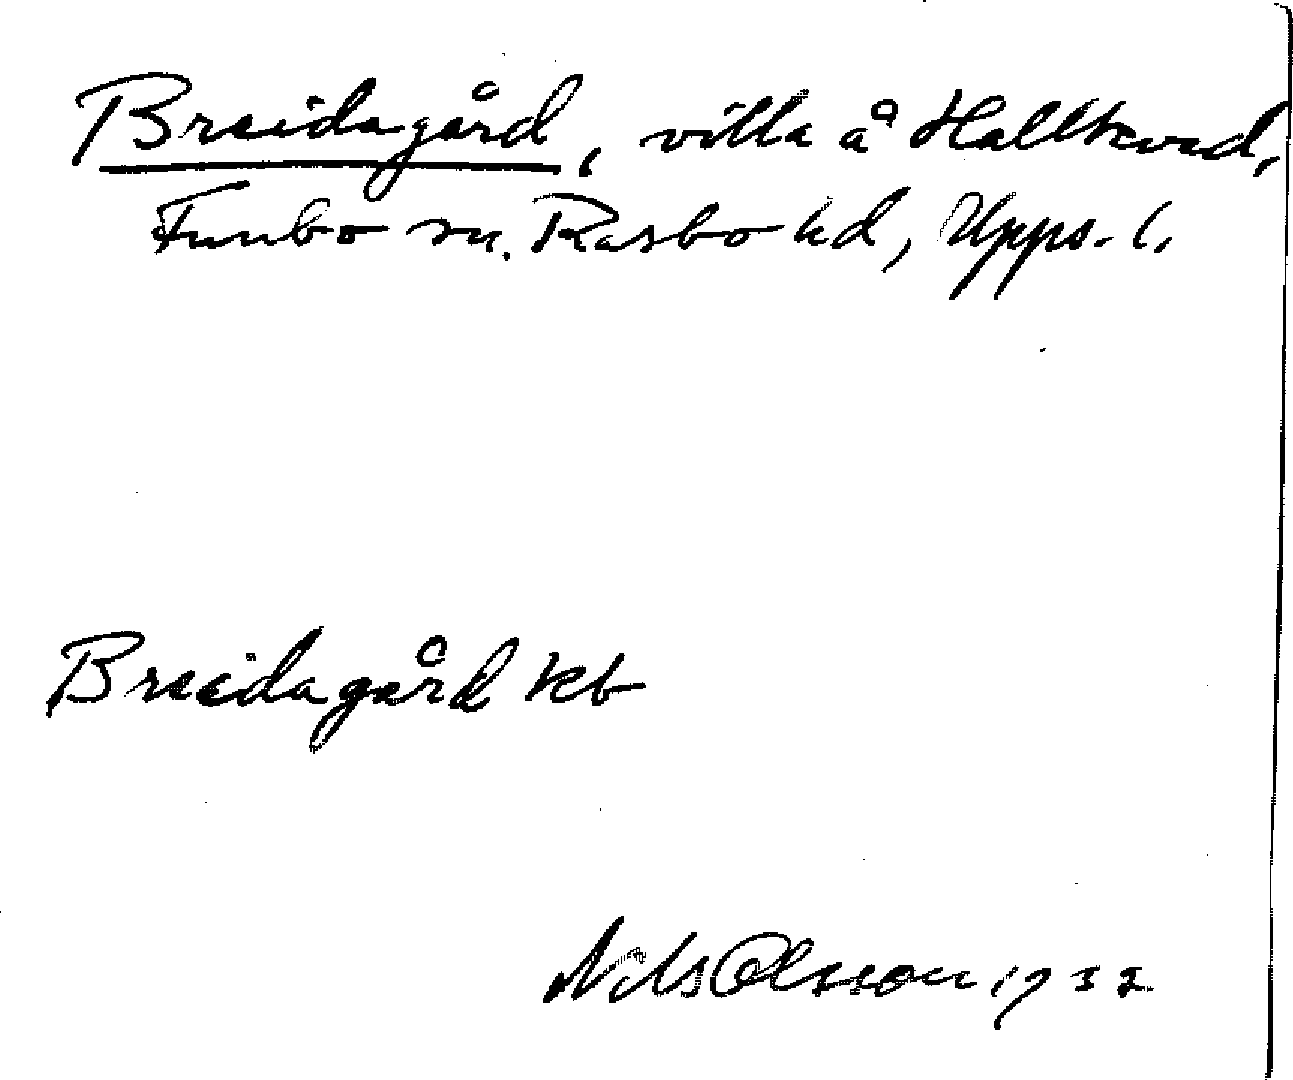 Breidagård, villa å Hallkved,
Funbo sn. Rasbo hd, Upps. l.
Breidagård kb
Nils Olsson 1932